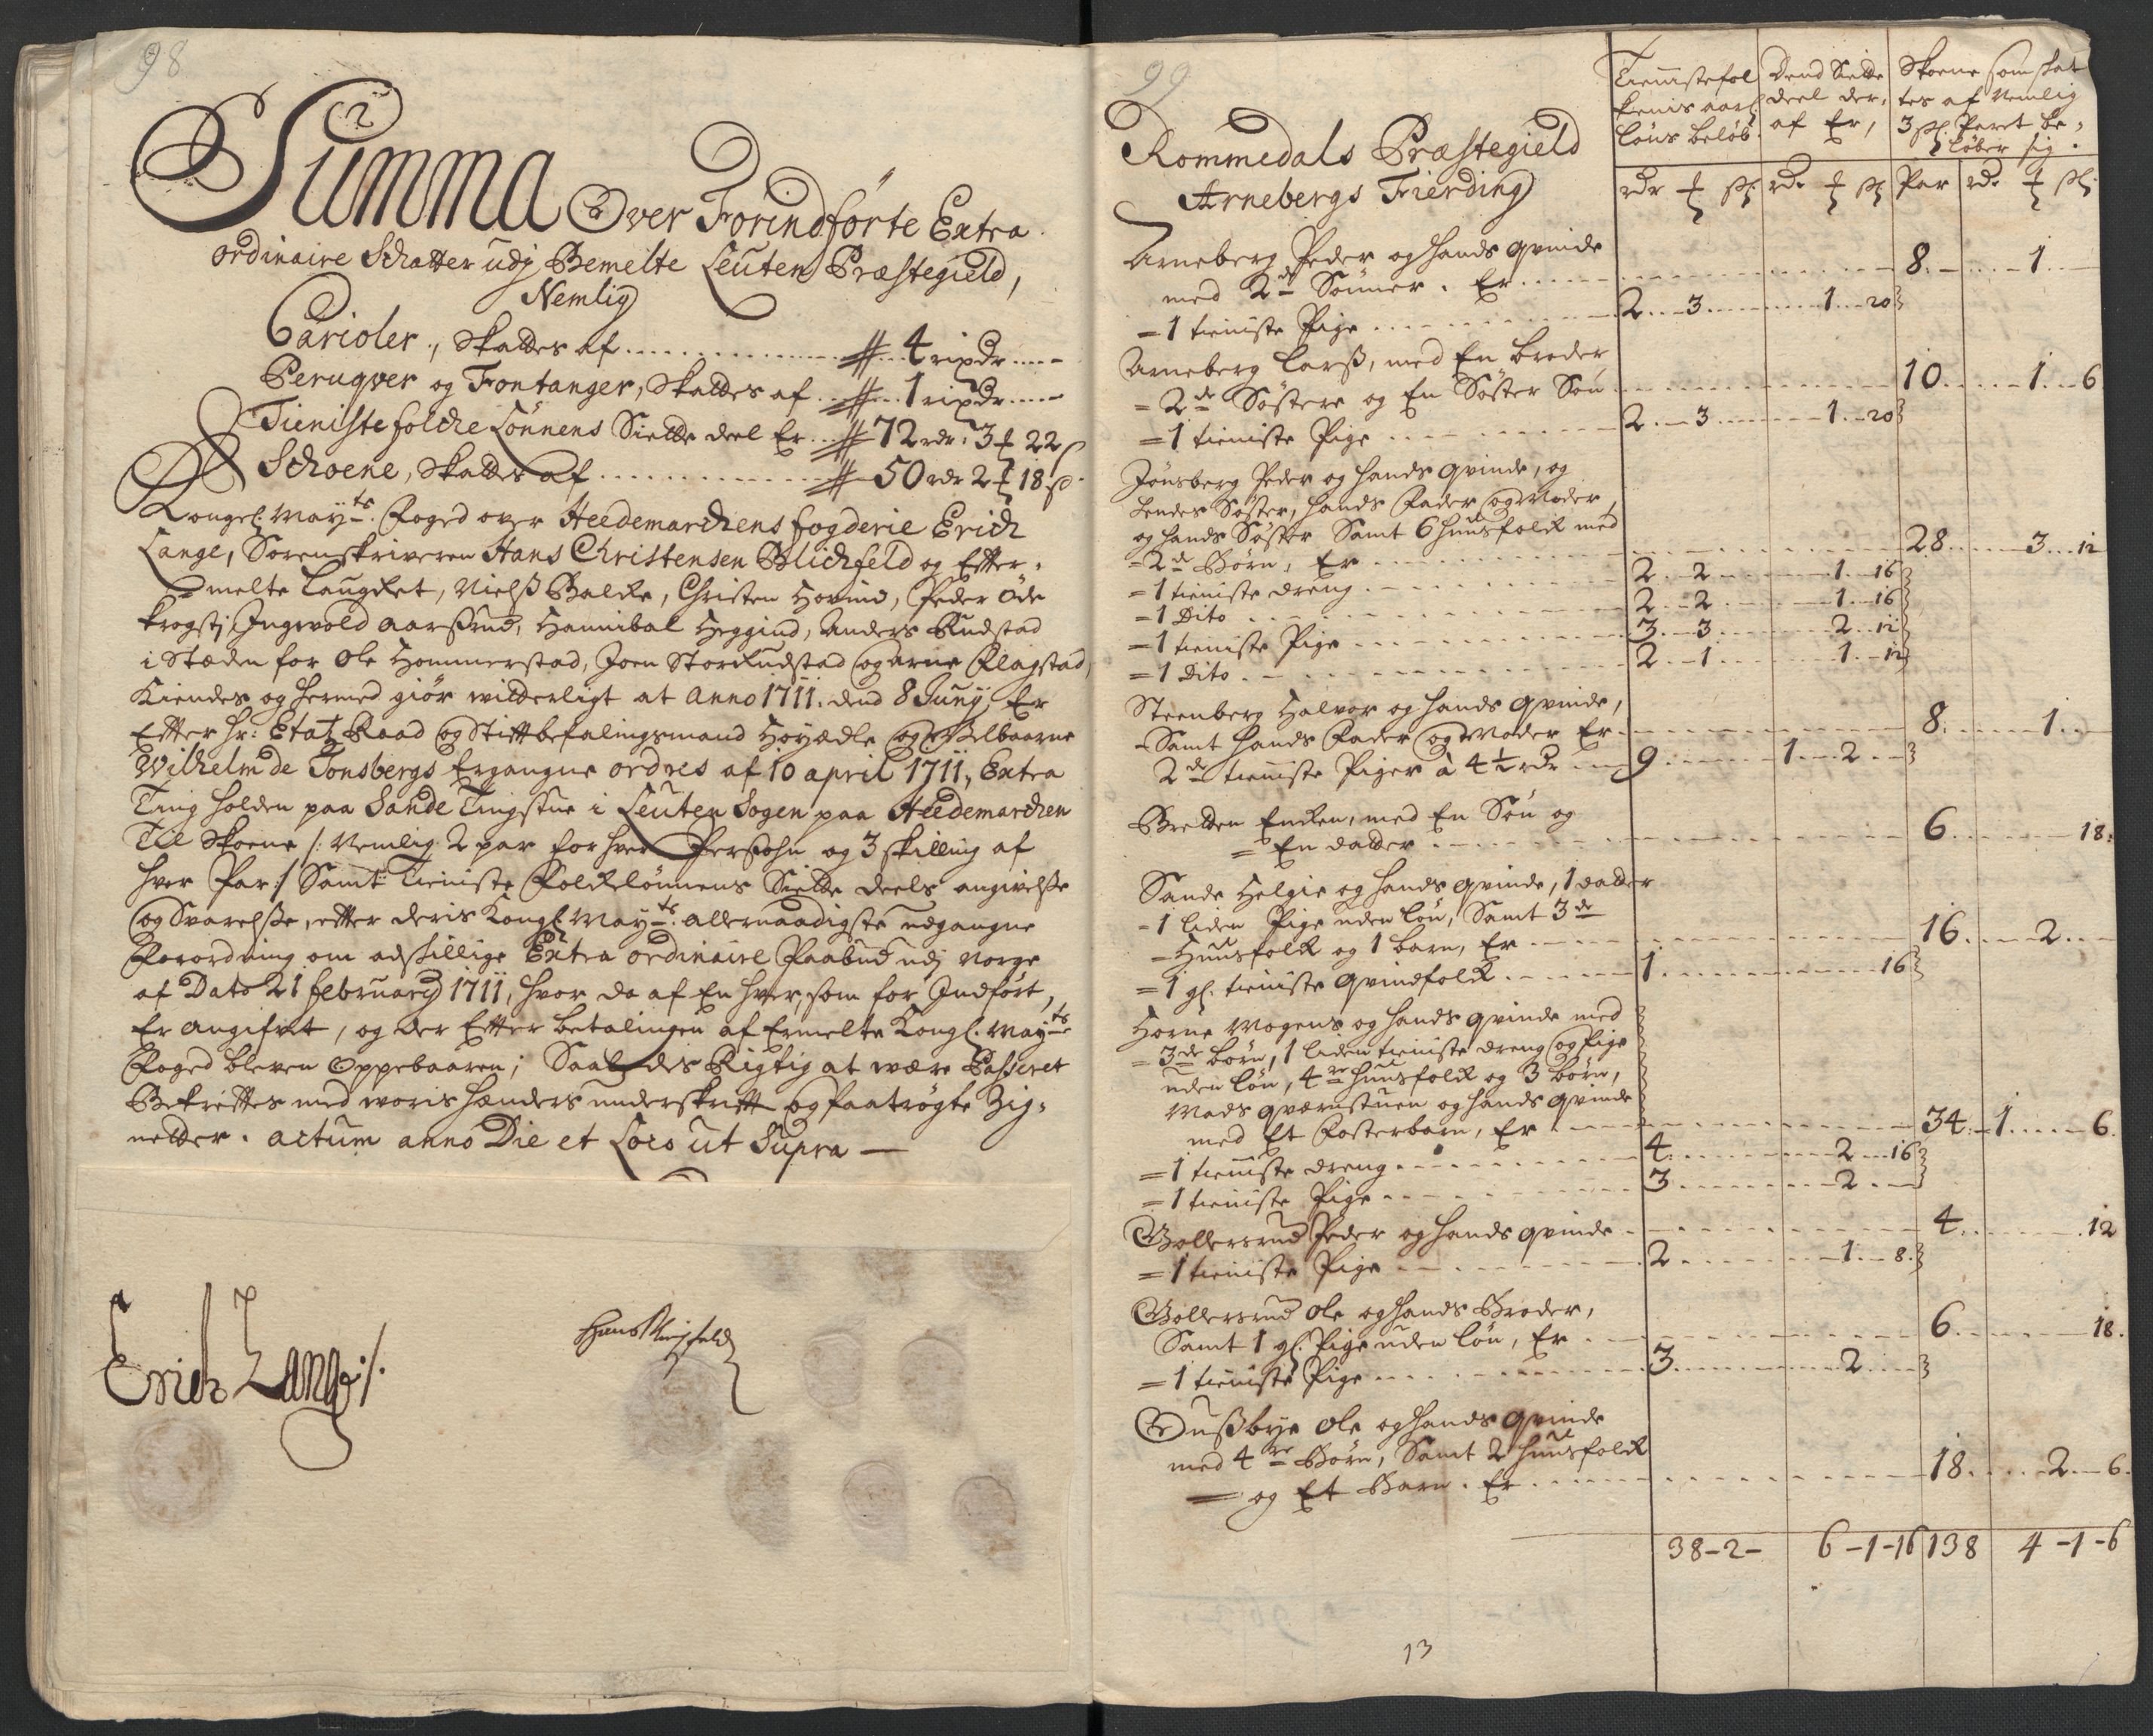 98
Summa Over Forindförte Extra
ordinaire Schatter udj Bemelte Leuten Præstegield,
Nemlig
Carioler, Skattes af 4 rixdr
Peruqver og Fontanger, Skattes af 1 rixdr
Tieniste folcke Lönnens Siette deel Er 72 rdr 3 22
Schoene, Skattes af 50 rdr 2 18
Kongel. May.ts Foged over Heedemarckens fogderie Erich
Lange, Sorenskriveren Hans Christensen Blichfeld og Efter-
melte Laugret, Nielß Balche, Christen Hovind, Peder Öde
krogstj, Ingvold Aarßrud, Hannibal Heggind, Anders Rudstad
i Steden for Ole Hommerstad, Joen Storrudstad og Arne Flagstad,
Kiendes og hermed giör witterligt at Anno 1711. dend 8 Junij, Er
Efter Hr: Etatz Raad og Stiftbefalingsmand Höyædle og Velbaarne
Wilhelm de Tonsbergs Ergangne ordres af 10 april 1711, Extra
Ting holden paa Sande Tingstue i Leuten Sogen paa Heedemarcken
Til Skoene /: Nemlig 2 par for hver Persohn og 3 skilling af
hver Par :/ Samt Tieniste Folcklönnens Siette deels angivelße
og Svarelße, efter deris Kongl. May.ts allernaadigste udgangne
Forordning om adskillige Extra ordinaire Paabud udj Norge
af Dato 21 february 1711, hvor da af En hver, som for Indfört,
Er angifvet, og der Efter betalingen af Ermelte Kongl. May.ts
Foged bleven Oppebaaren; Saaledis Rigtig at være Passeret
Bekreftes med woris hænders underskrift og paatrögte Zig-
netter. actum anno Die et Loco ut Supra —
Erich Lange
Hans Blichfeld
99
Rommedals Præstegield
Arnebergs Fierding
Tienistefol kenis aarl. löns belöb
Dend Siette deel der af Er,
Skoene som skat tes af Nemlig 3 sk. Paret be- löber sig.
rdr sk rdr sk Par rdr sk
Arneberg Peder og hands qvinde
med 2de Sönner. Er 8 1
= 1 tieniste Pige 2 3 1 20
Arneberg Larß, med En broder
= 2de Söstere og En Söster Sön 10 1 6
= 1 tieniste Pige 2 3 1 20
Jönsberg Peder og hands qvinde, og
hendes Söster, hands Fader og Moder,
og hands Söster Samt 6 huusfolck med
= 2de Börn, Er 28 3 12
= 1 tieniste dreng 2 2 1 16
= 1 Dito 2 2 1 16
= 1 tieniste Pige 3 3 2 12
= 1 Dito 2 1 1 12
Steenberg Halvor og hands qvinde,
Samt hands Fader og Moder Er 8 1
2de tieniste Piger à 4½ rdr 9 1 2
Bretten Encken, med En Sön og
= En datter 6 18
Sande Helgie og hands qvinde, 1 datter
= 1 liden Pige uden lön, Samt 3de
= Huusfolck og 1 barn, Er 16 2
= 1 gl. tieniste qvindfolck 1 16
Horne Mogens og hands qvinde med
= 3de börn, 1 liden tieniste dreng og Pige
uden lön, 4re huusfolck og 3 börn,
Mads qværnstuen og hands qvinde
med Et Fosterbarn, Er 34 1 6
= 1 tieniste dreng 4 2 16
= 1 tieniste Pige 3 2
Gollersrud Peder og hands qvinde 4 12
= 1 tieniste Pige 2 1 8
Gollersrud Ole og hands Broder,
Samt 1 gl. Pige uden lön, Er 6 18
= 1 tieniste Pige 3 2
Ousbye Ole og hands qvinde
med 4re Börn, Samt 2 huusfolck
= og Et Barn. Er 18 2 6
38-2- 6-1-16 138 4-1-6
13